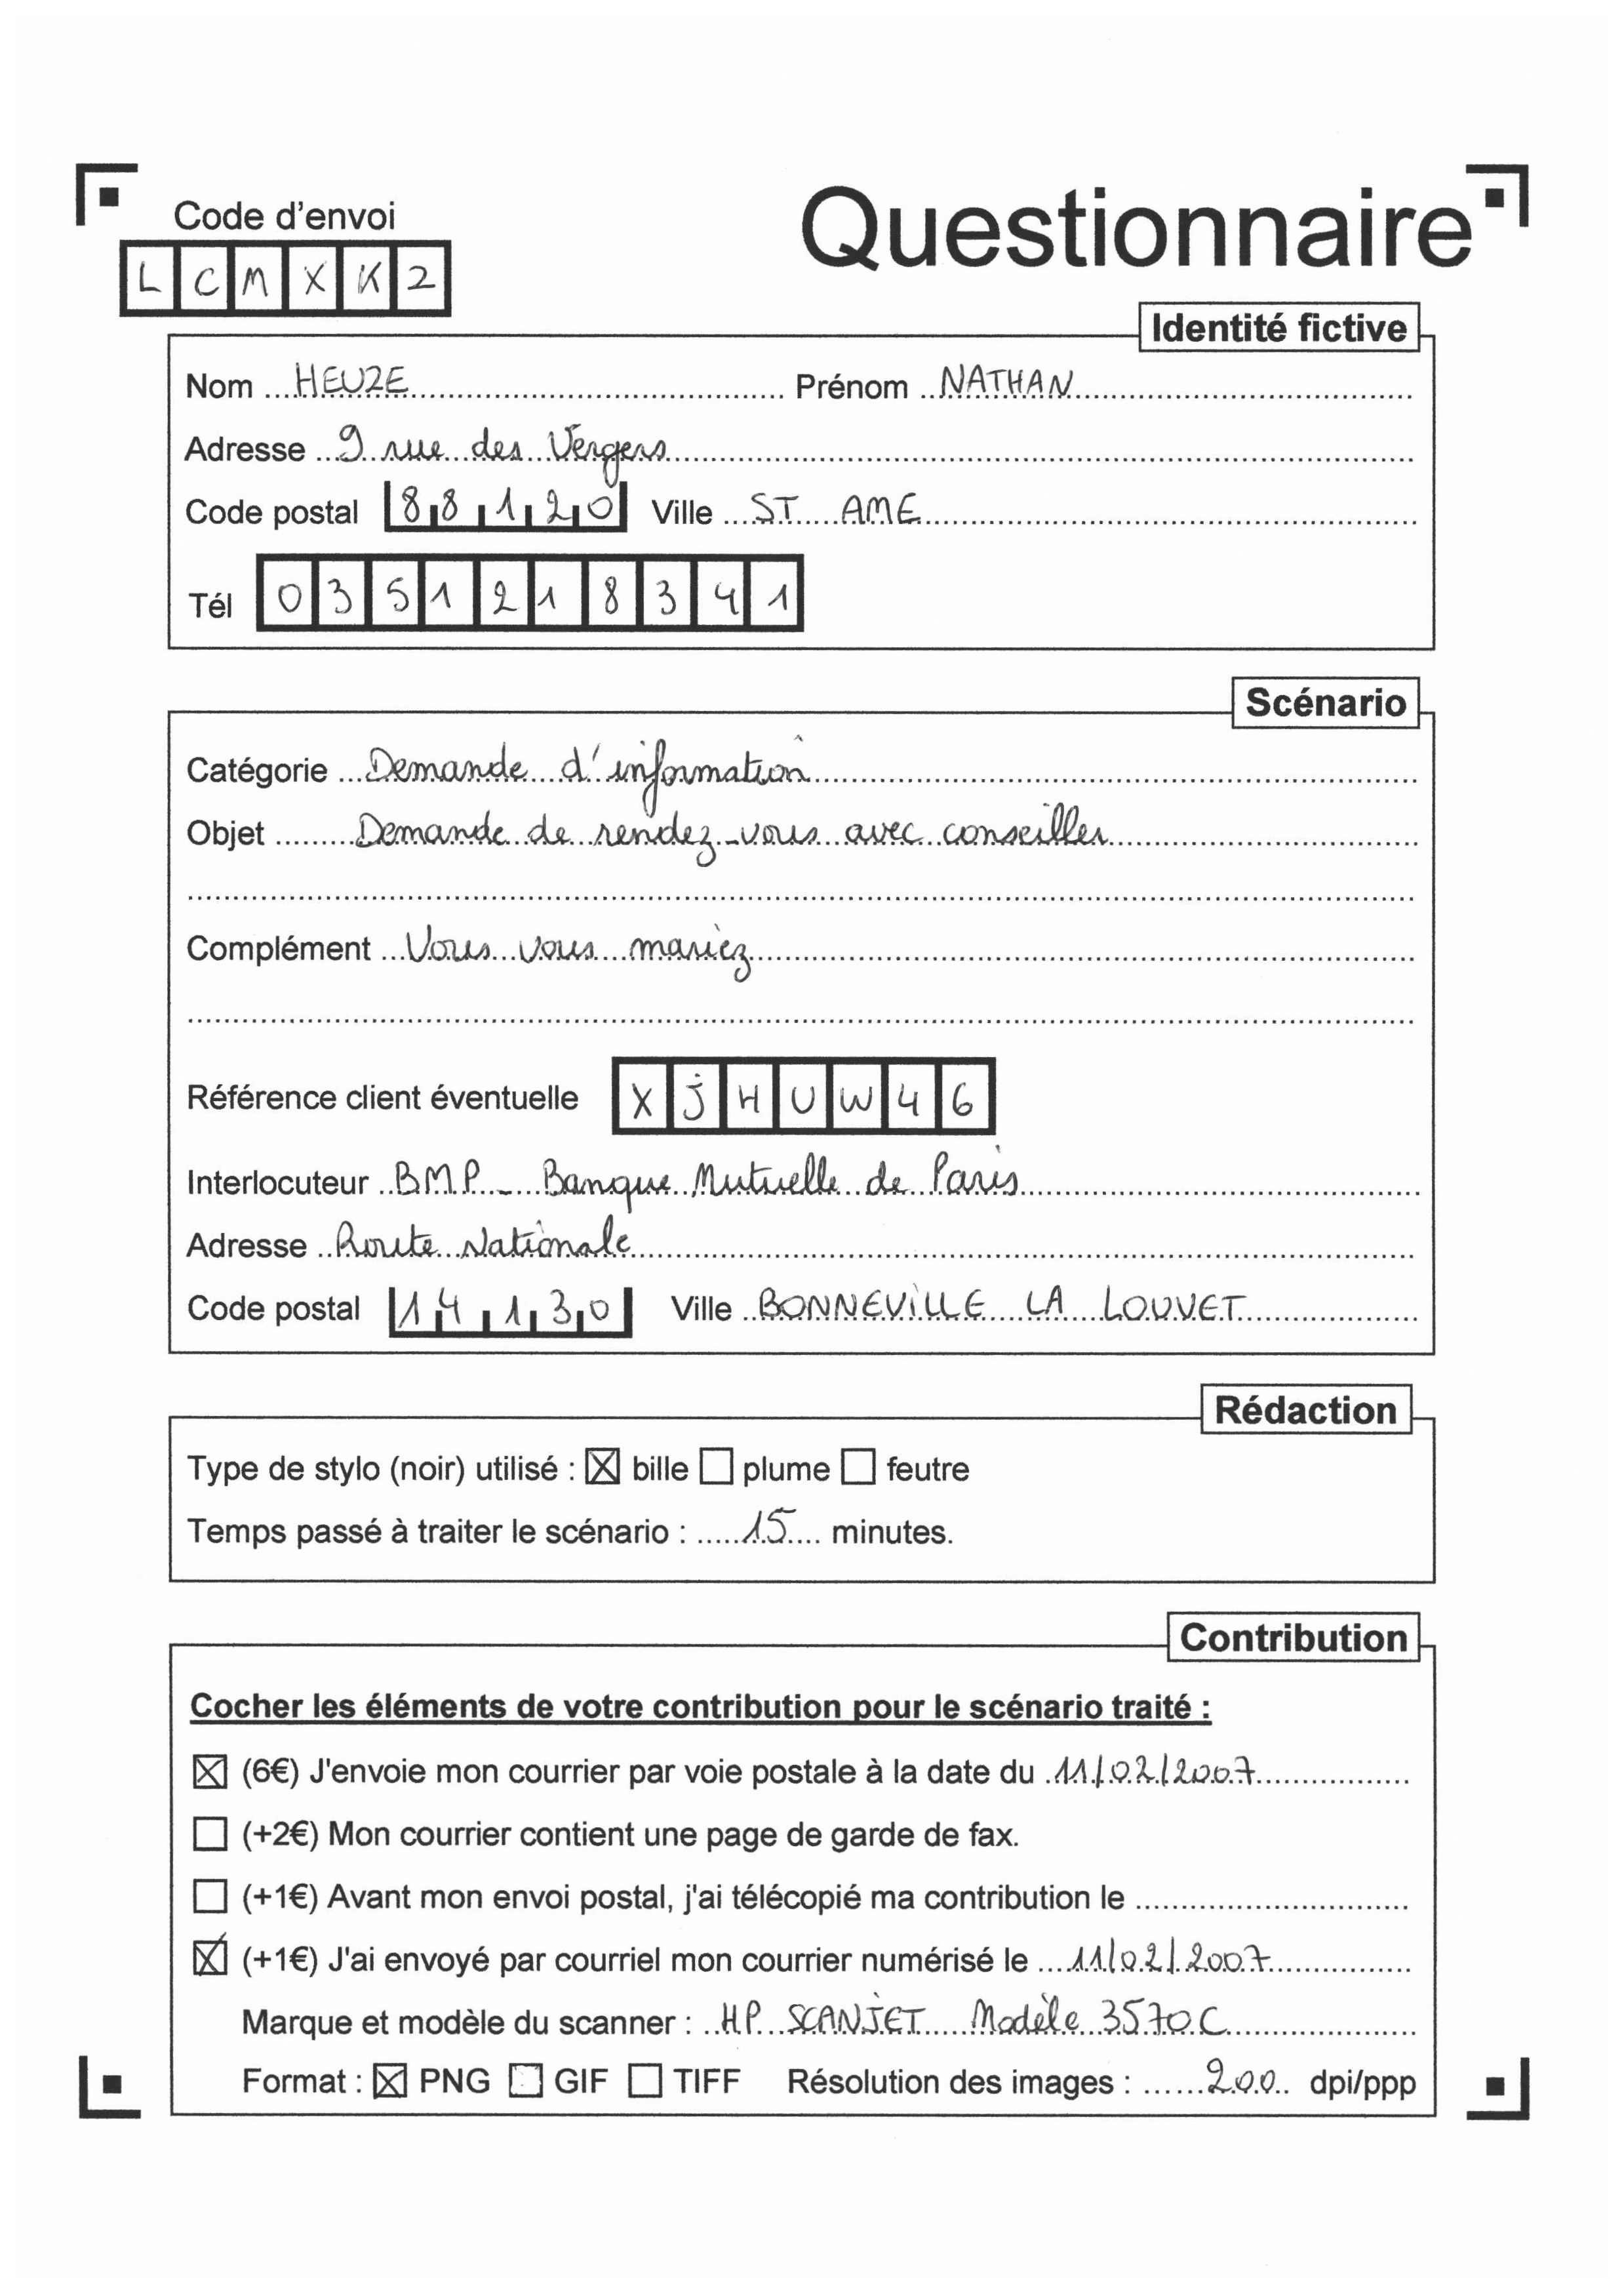 Code d'envoi
Questionnaire
L C M X K 2
Identité fictive
Nom HEUZE Prénom NATHAN
Adresse 9 rue des Vergers
Code postal 88120 Ville ST AME
Tél 0351218341
Scénario
Catégorie Demande d'information
Objet Demande de rendez-vous avec conseiller
Complément Vous vous mariez
Référence client éventuelle X J H U W 4 6
Interlocuteur BMP - Banque Mutuelle de Paris
Adresse Route Nationale
Code postal 14130 Ville BONNEVILLE LA LOUVET
Rédaction
Type de stylo (noir) utilisé : ☒ bille ☐ plume ☐ feutre
Temps passé à traiter le scénario : 15 minutes.
Contribution
Cocher les éléments de votre contribution pour le scénario traité :
☒ (6€) J'envoie mon courrier par voie postale à la date du 11/02/2007
☐ (+2€) Mon courrier contient une page de garde de fax.
☐ (+1€) Avant mon envoi postal, j'ai télécopié ma contribution le
☒ (+1€) J'ai envoyé par courriel mon courrier numérisé le 11/02/2007
Marque et modèle du scanner : HP SCANJET Modèle 3570C
Format : ☒ PNG ☐ GIF ☐ TIFF Résolution des images : 200 dpi/ppp